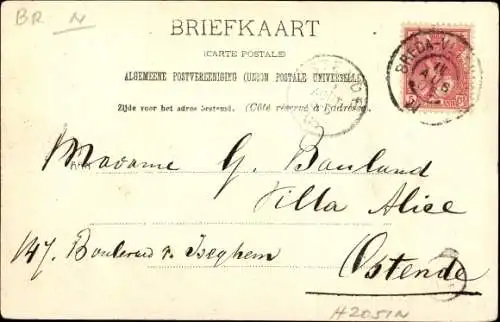 BR N
BRIEFKAART
(CARTE POSTALE)
ALGEMEENE POSTVEREENIGING (UNION POSTALE UNIVERSELLE)
Zijde voor het adres bestemd. (Côté réservé à l'adresse)
BREDA-V
AUG
Madame G. Bauland
Villa Alice
147. Boulevard v. Iseghem
Ostende
H2051N